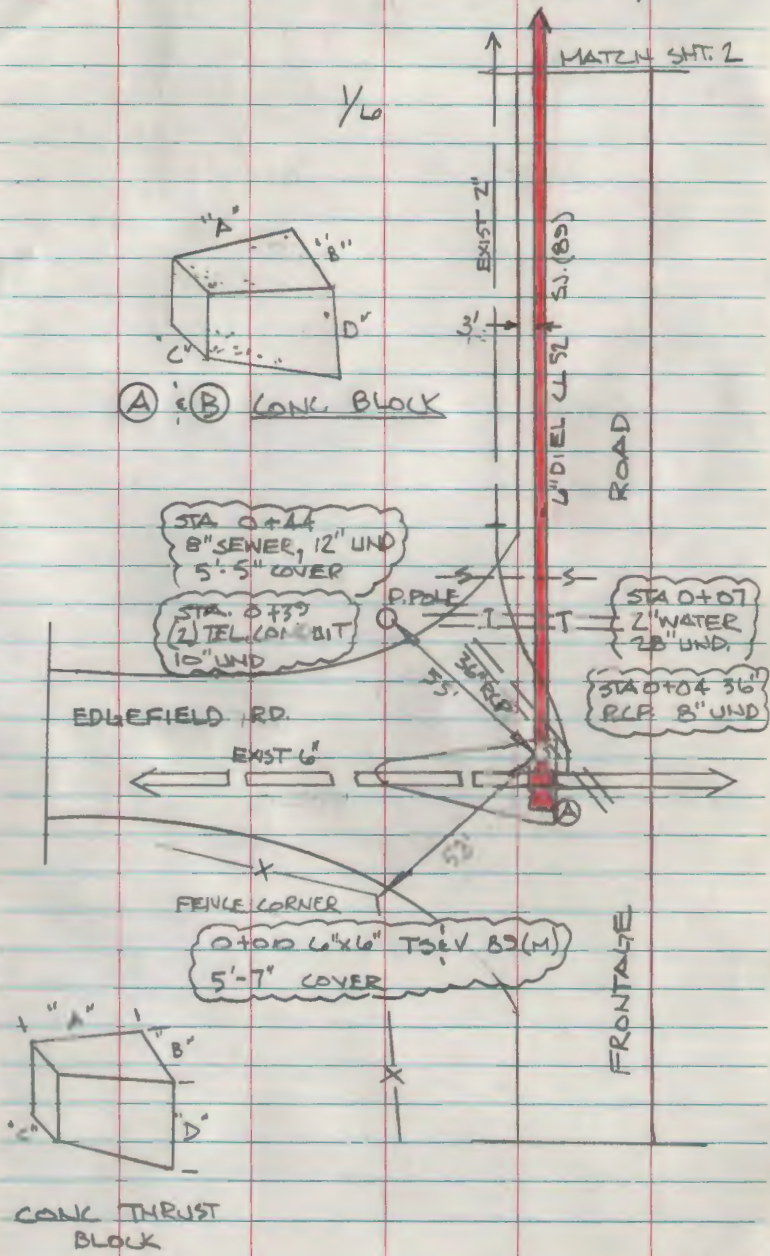 MATCH SHT. 2
1/6
"A"
"B"
"C"
"D"
(A) & (B) CONC BLOCK
EXIST 2"
3'
6" DIEL CL 52 SJ. (89)
ROAD
STA 0+44
8" SEWER, 12" UND
5'-5" COVER
S
S
P.POLE
T
T
STA. 0+39
(2) TEL. CONDUIT
10" UND
STA 0+07
2" WATER
28" UND.
STA 0+04 36"
RCP. 8" UND
55'
36" RCP
EDGEFIELD RD.
EXIST 6"
A
53'
X
FENCE CORNER
0+00 6"x6" TS&V 89(M)
5'-7" COVER
FRONTAGE
X
"A"
"B"
"C"
"D"
CONC THRUST
BLOCK